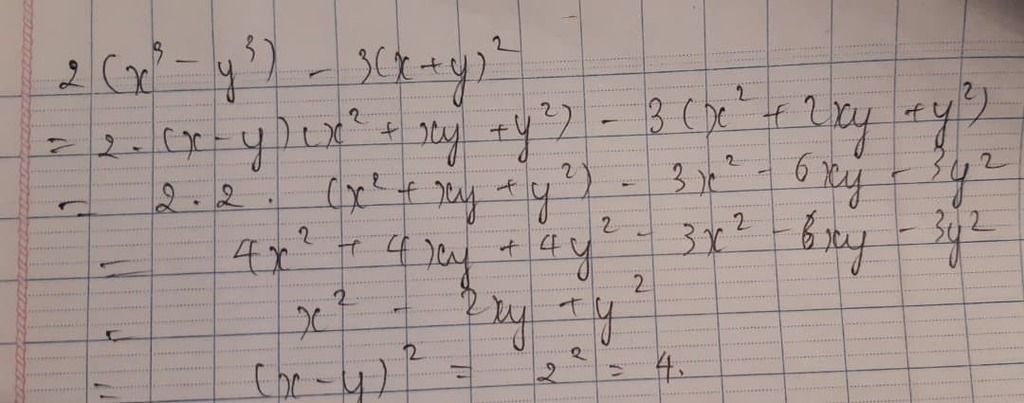 2 (x³ - y³) - 3(x+y)²
= 2. (x-y) (x² + xy + y²) - 3 (x² + 2xy + y²)
= 2.2. (x² + xy + y²) - 3x² - 6xy - 3y²
= 4x² + 4xy + 4y² - 3x² - 6xy - 3y²
= x² - 2xy + y²
= (x-y)² = 2² = 4.